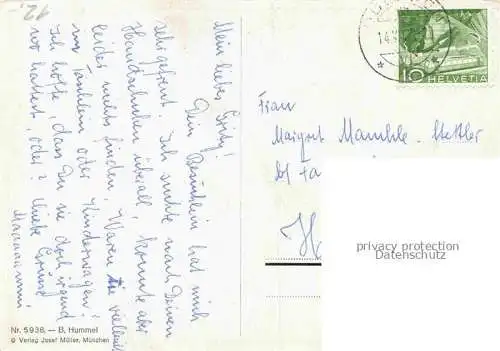 12.
Mein liebes Gusty!
Dein Besüchlein hat mich
sehr gefreut. Ich suchte nach Deinen
Handschuhen überall, konnte aber
leider nichts finden. Waren sie vielleicht
im Täschlein oder Kinderwagen?
Ich hoffe, dass Du sie doch irgend
wo hattest, oder? Liebe Grüsse
Nr. 5938. — B. Hummel
© Verlag Josef Müller, München
14.X
10 HELVETIA
Frau
Margrit
privacy protection
Datenschutz